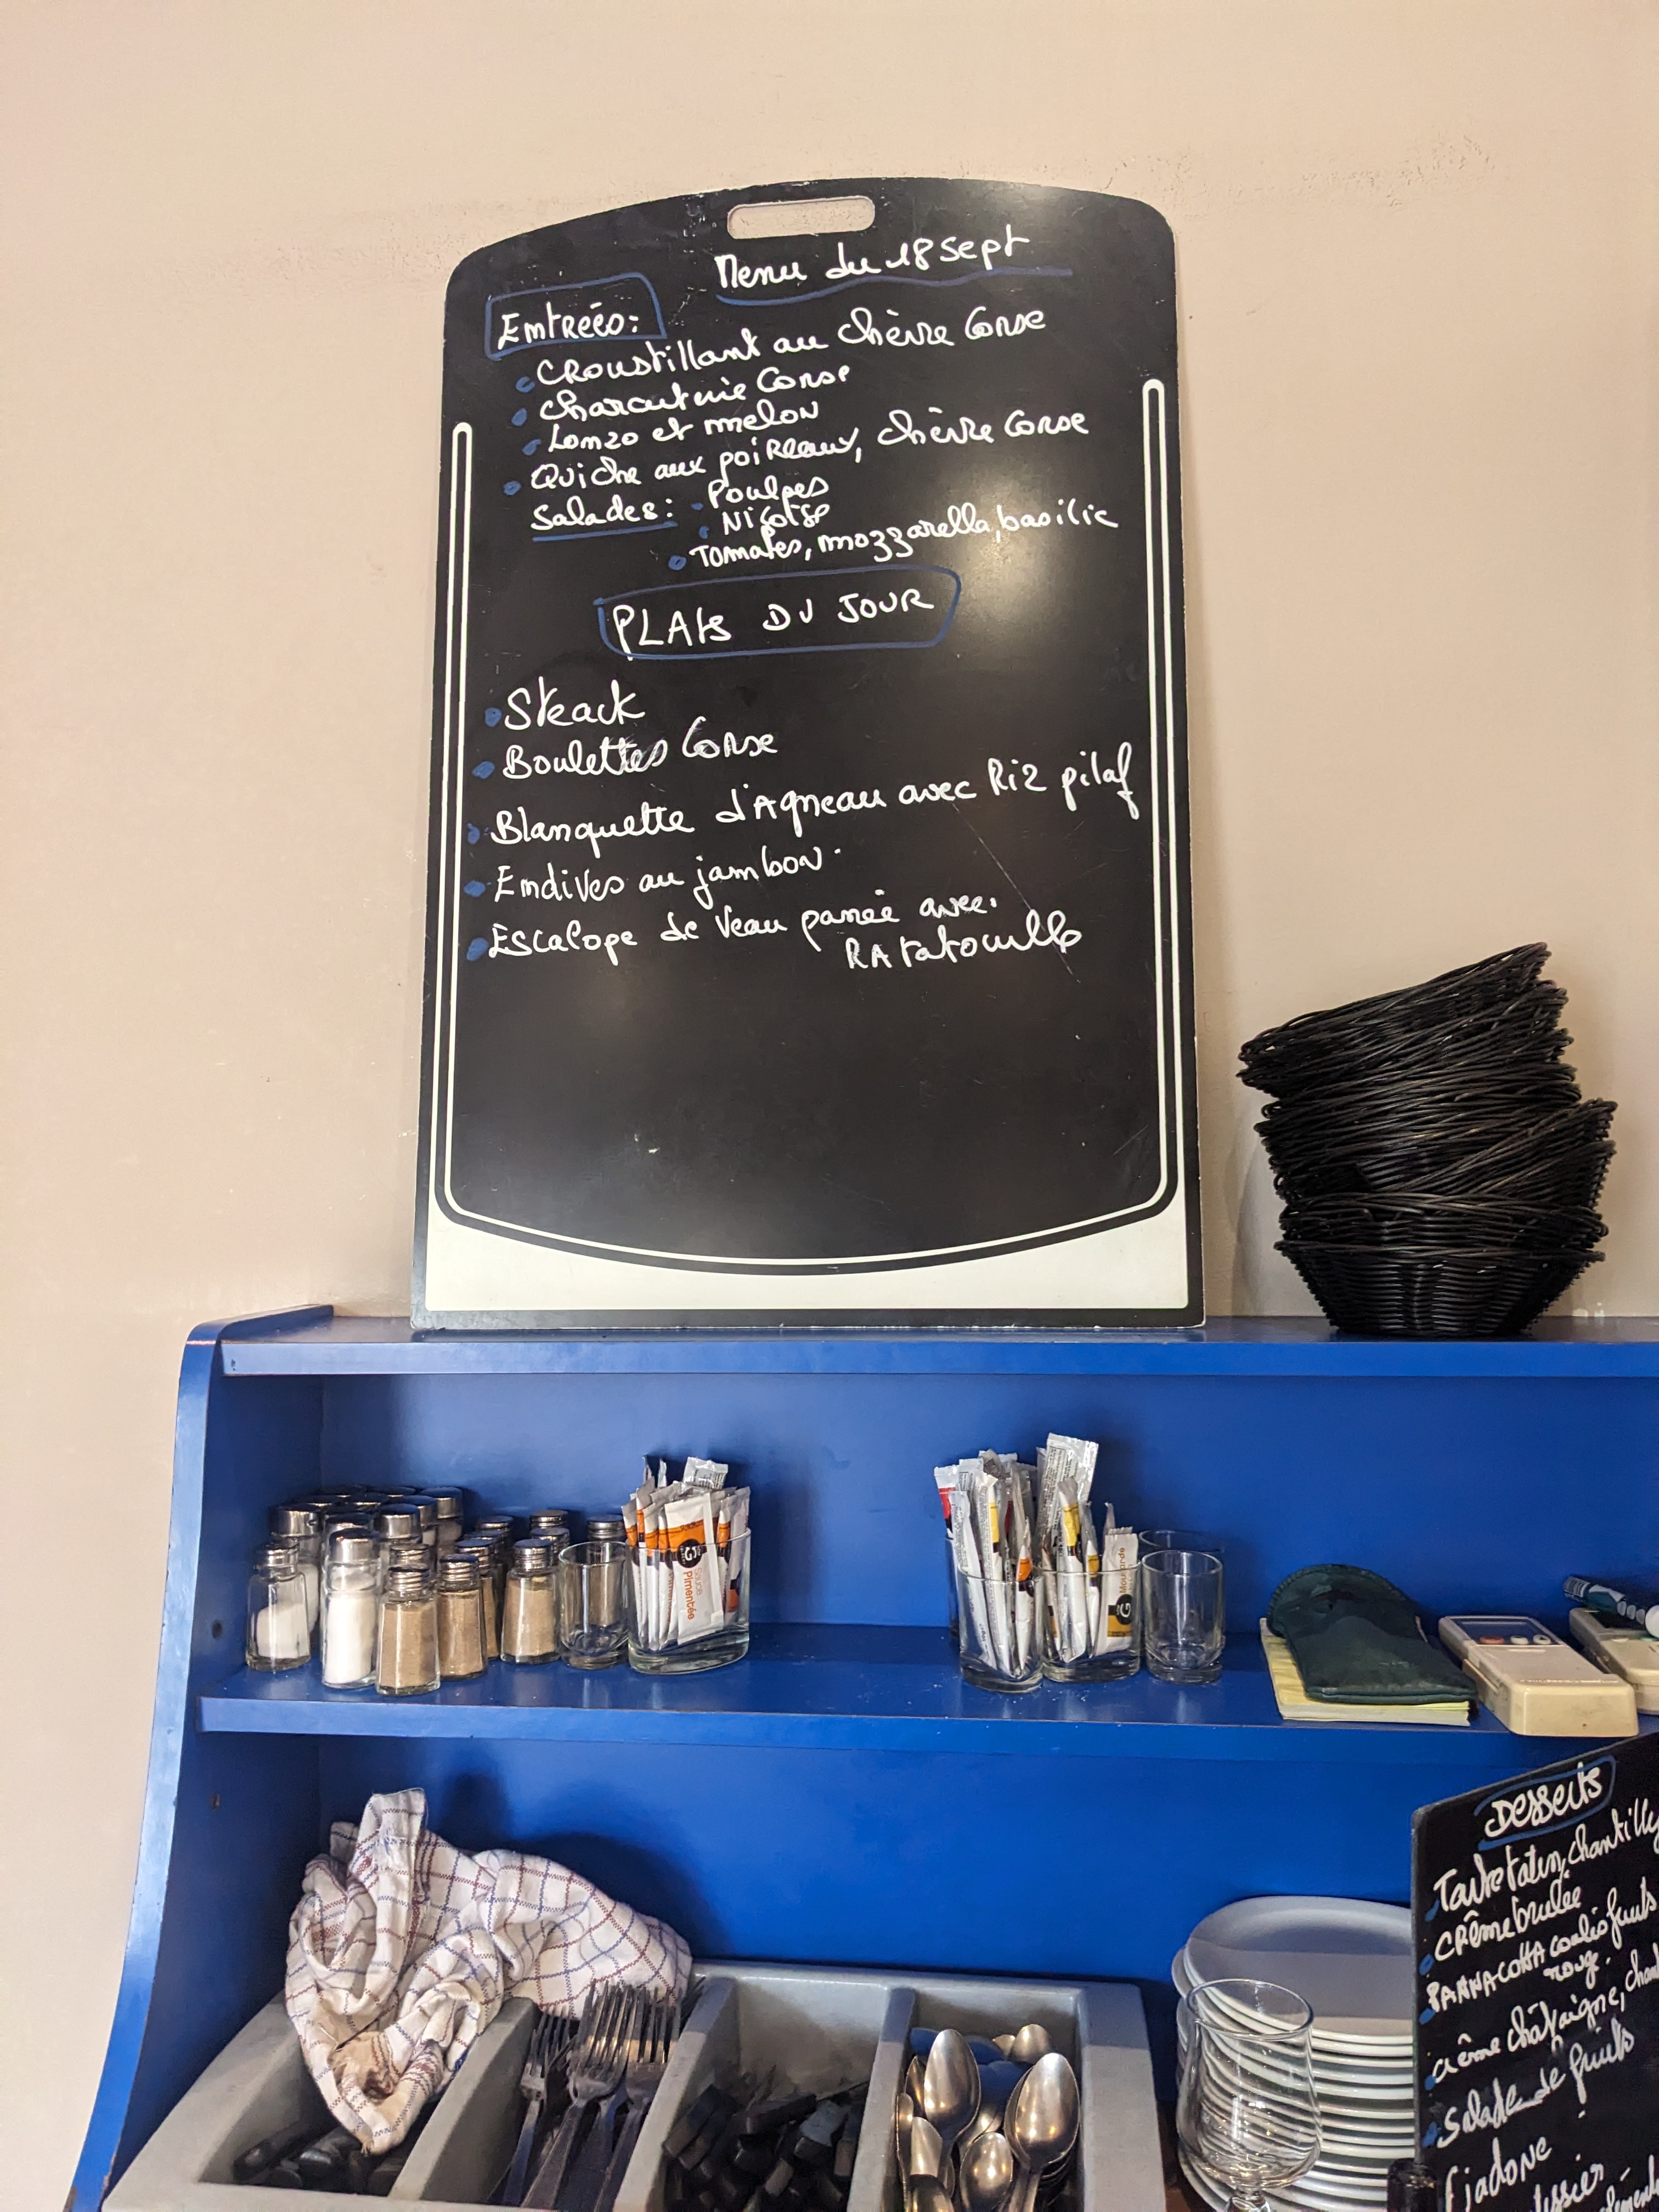 Menu du 18 sept
Entrées:
Croustillant au chèvre Corse
Charcuterie Corse
Lonzo et melon
Quiche aux poireaux, chèvre Corse
Salades: Poulpes
Niçoise
Tomates, mozzarella, basilic
PLATS DU JOUR
Steack
Boulettes Corse
Blanquette d'Agneau avec Riz pilaf
Endives au jambon
Escalope de Veau panée avec
Ratatouille
Pimentée
Moutarde
Desserts
Tarte tatin, chantilly
Crème brulée
PANNACOTTA coulis fruits
roug.
crème châtaigne, chan
Salade de fruits
Fiadone